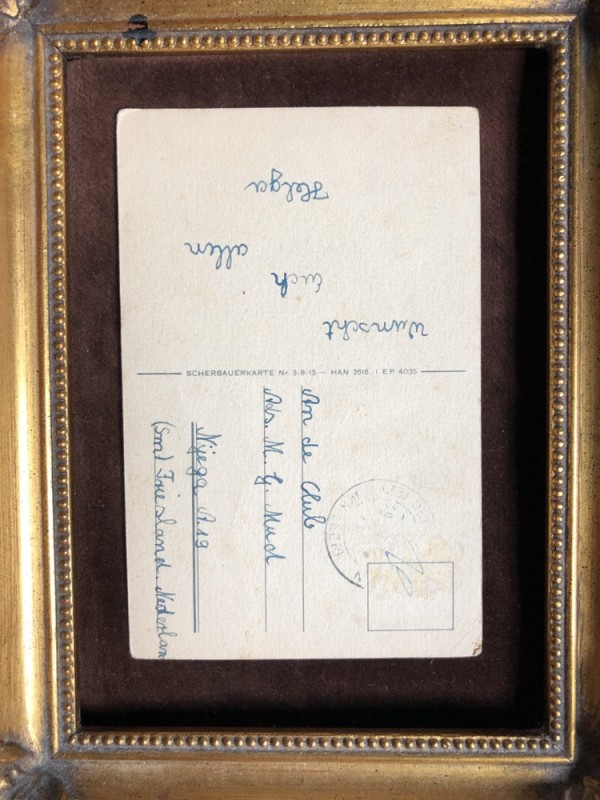 Wunscht
Euch
allen
Helga
SCHERBAUERKARTE Nr. 3-8-13 - HAN 2616 - I EP 4035
An de Club
Ads. M. G. Mud
Nijega A.19
(Sm) Friesland. Nederland